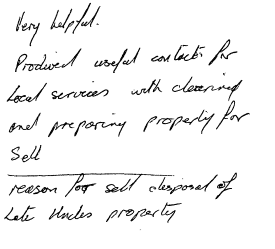 Very helpful.
Produced useful contacts for
local services with clearing
and preparing property for
Sell
reason for sell disposal of
Late Uncles property